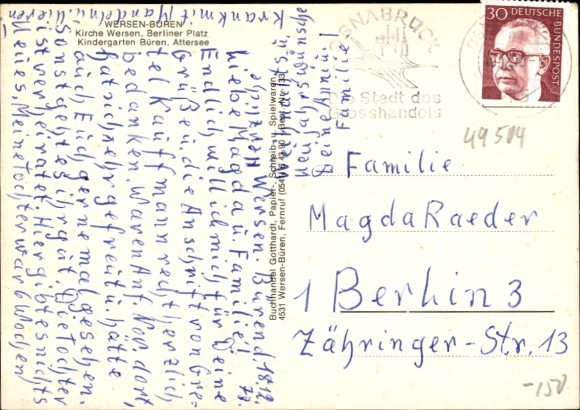 WERSEN-BÜREN
Kirche Wersen, Berliner Platz
Kindergarten Büren, Attersee
Buchhandel Gotthardt, Papier-, Schreib- u. Spielwaren
4531 Wersen-Büren, Fernruf
OSNABRÜCK
Die Stadt des
Grosshandels
30 DEUTSCHE
BUNDESPOST
49504
Wersen-Büren, d. 18.12.
Liebe Magda u. Familie!
Endlich will ich mich für Deine
Grüße u. die Anschrift von Gre-
tel Kauffmann recht herzlich
bedanken. Waren Anf. Nov. dort,
hat sich sehr gefreut u. hätte
auch Euch gerne mal gesehen.
Sonst geht es ihr gut, die Tochter
ist verheiratet. Hier gibt es nichts
Neues. Meine Tochter war 6 Wochen
krank mit Mandeln u. Nieren
Weihnachts- u.
Neujahrswünsche
Deine Anni u.
Familie!
Familie
Magda Raeder
1 Berlin 3
Zähringer-Str. 13
-150